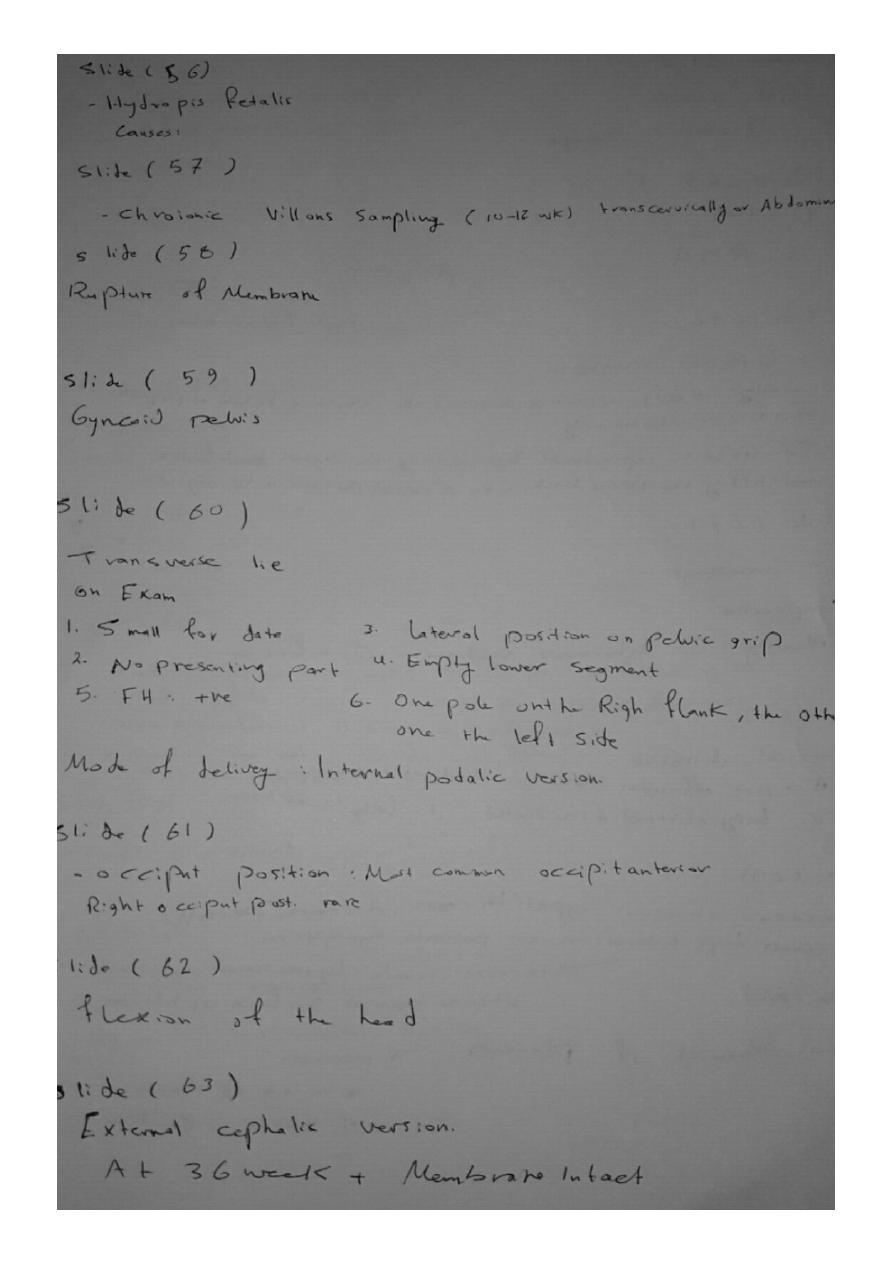 Slide ( 56)
- Hydropis Fetalis
Causes:
Slide ( 57 )
- Chroionic Villons Sampling ( 10-12 wk) transcervically or Abdomin
slide ( 58 )
Rupture of Membrane
Slide ( 59 )
Gyncoid pelvis
Slide ( 60 )
Transverse lie
on Exam
1. Small for date 3. Lateral position on pelvic grip
2. No presenting part 4. Empty lower segment
5. FH : +ve 6- One pole on the Righ flank, the oth
one the left side
Mode of delivey : Internal podalic version.
Slide ( 61 )
- occiput position : Most common occipitanterior
Right occiput post. rare
lide ( 62 )
flexion of the head
slide ( 63 )
External cephalic version.
At 36 week + Membrane Intact